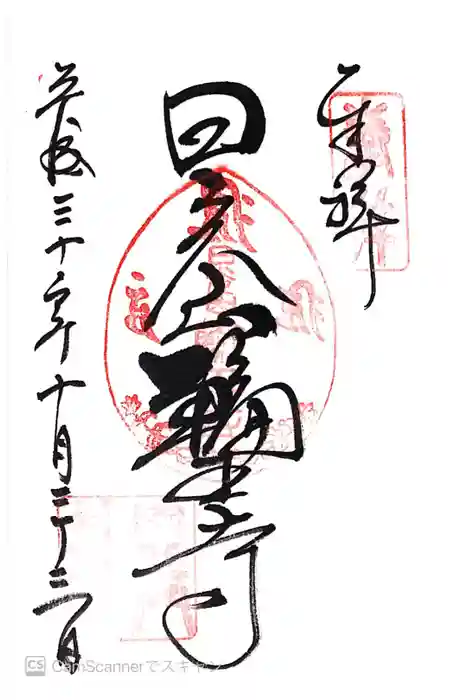 奉拝
日光山輪王寺
平成三十年十月二十三日
CS CamScannerでスキャン